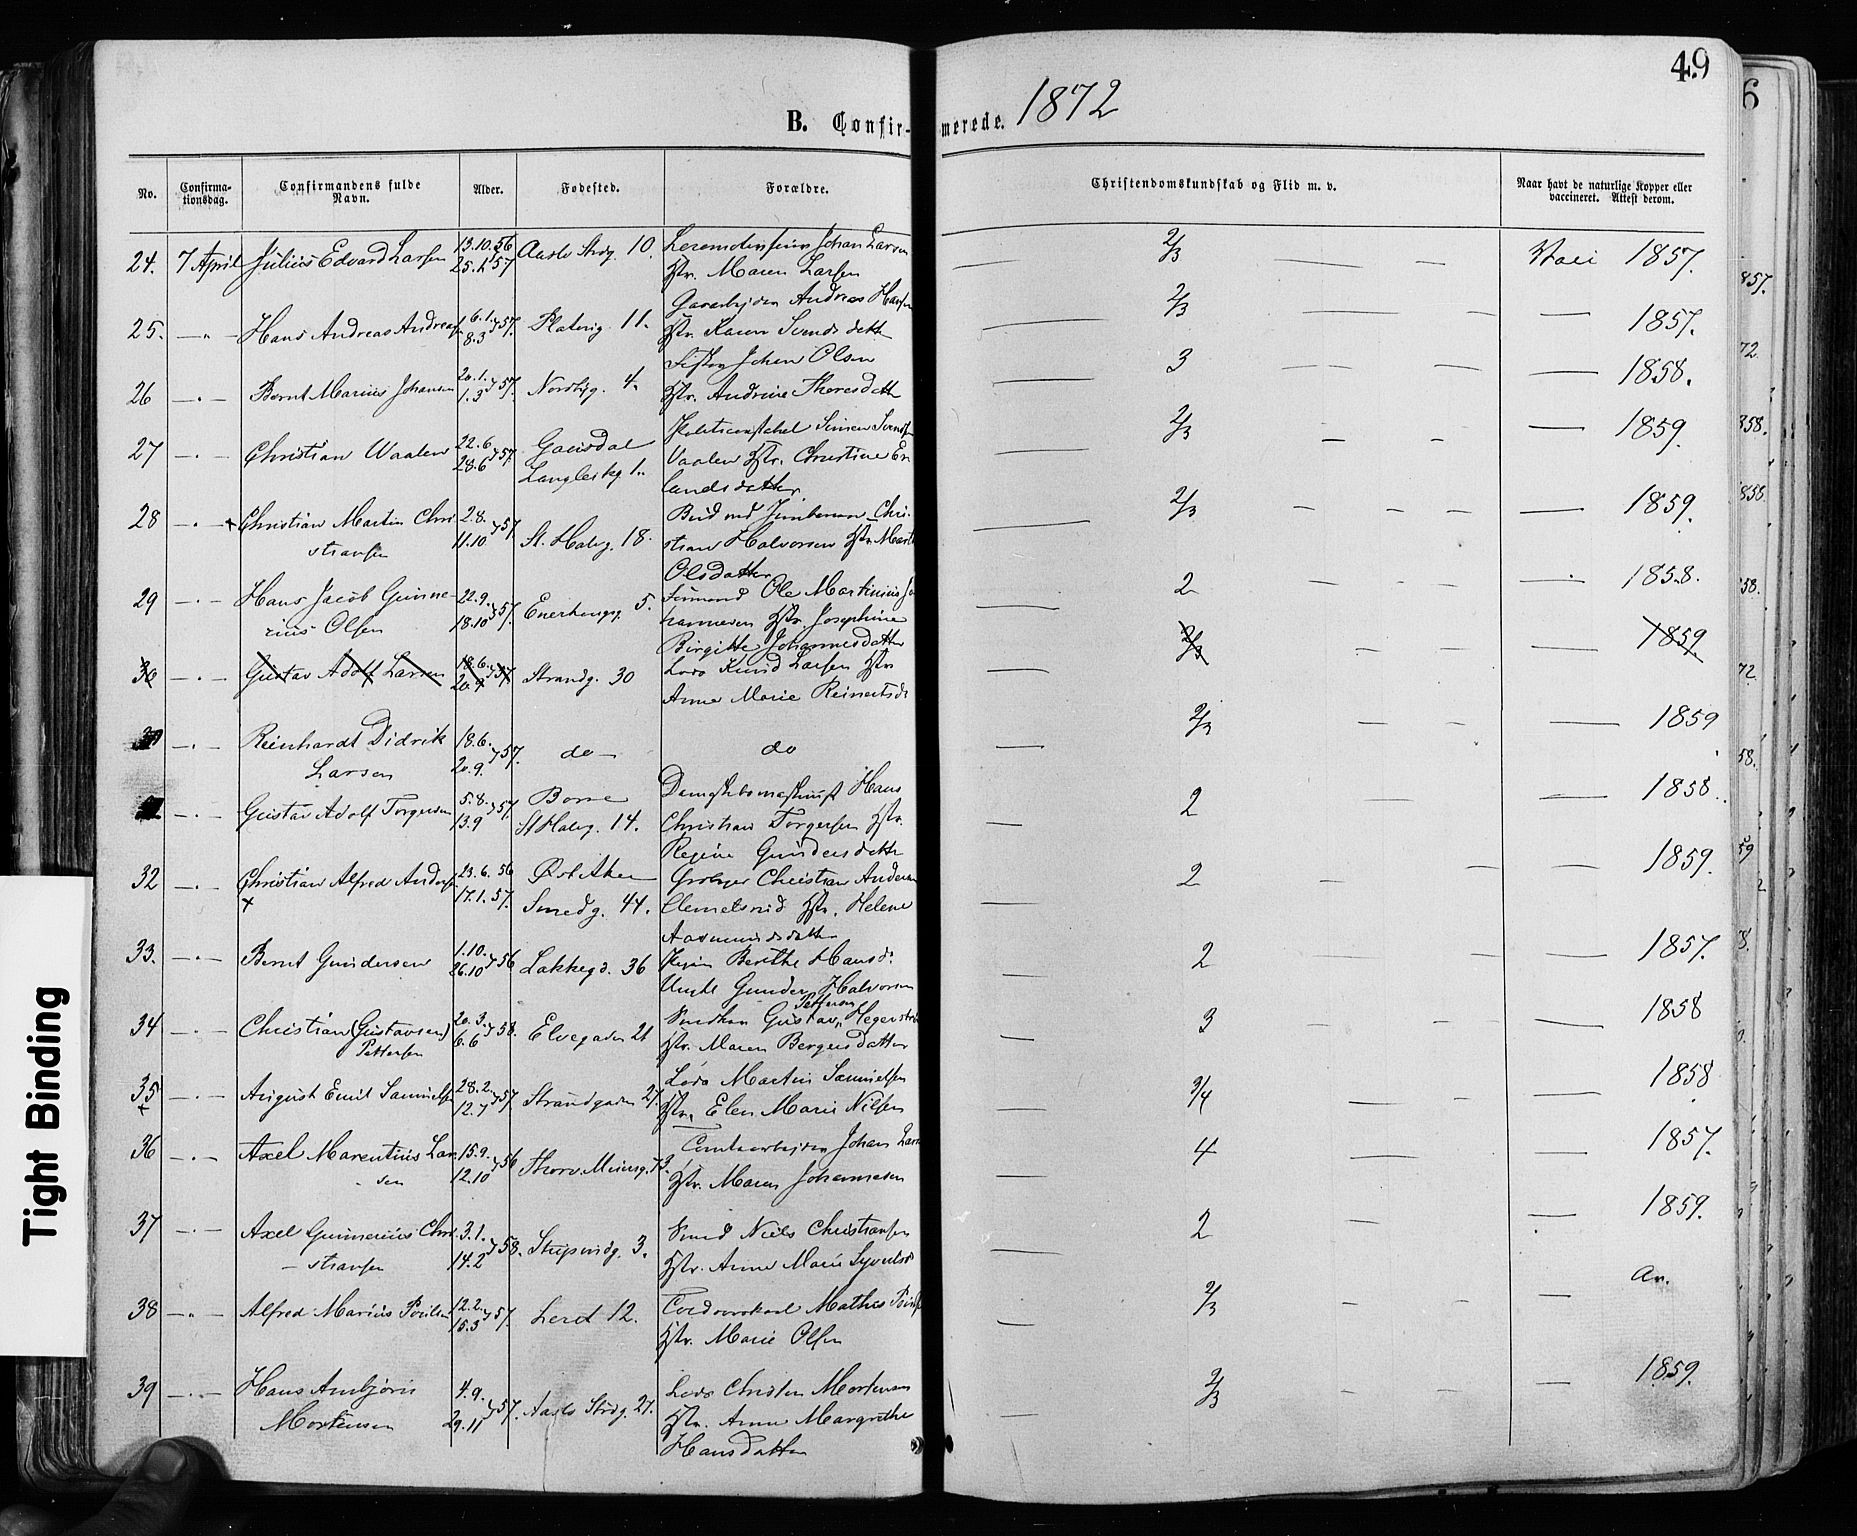 49
6
B. Confir-
merede. 1872
No.
Confirma-
tionsdag.
Confirmandens fulde
Navn.
Alder.
Fødested.
Forældre.
Christendomskundskab og Flid m. v.
Naar havt de naturlige Kopper eller
vaccineret. Attest derom.
24. 7 April Julius Edvard Larsen 13.10.56 25.1.57 10. Johan Larsen
Hstr. Maren Larsen 2/3 Vacc 1857.
25. Hans Andreas Andreas 6.1. 8.3 57. Platovg. 11. Andreas Hansen
Hstr. Karen Svendsdatter 2/3 1857.
26 Bernt Marius Johansen 20.1. 1.3 57. Nordbyg. 4. Johan Olsen
Hstr. Andrine Thoresdatter 3 1858.
27 Christian Waalen 22.6 28.6 57. Gausdal
Langleikg 1. Politiconstabel Simen Svendsen
Vaalen Hstr. Christine Er
landsdatter 2/3 1859.
28 Christian Martin Chri
stiansen 2.8. 11.10 57. St. Halvg. 18. Chri-
stian Halvorsen Hstr. Marth
Olsdatter 2/3 1859.
29 Hans Jacob Gunne-
rius Olsen 22.9. 18.10 57. Enerhaugg. 5. Ole Martinius Jo
hannesen Hstr. Josephine
Birgitte Johannesdatter 2 1858.
30 Gustav Adolf Larsen 18.6. 20.9 57 Strandg. 30 Knud Larsen Hstr
Anne Marie Reinertsd 2/3 1859.
30 Reinhardt Didrik
Larsen 18.6. 20.9. 57. do do 2/3 1859
Gustav Adolf Torgersen 5.8. 13.9 57. Borre
St Halvg. 14. Hans
Christian Torgersen Hstr.
Regine Gundersdatter 2 1858.
32 Christian Alfred Anders 23.6.56 17.1.57. Østre Aker
Smedg. 44. Christian Andersen
Clemetsrud Hstr. Helene
2 1859.
33. Bernt Gundersen 1.10. 26.10 56 Lakkegd. 36 Pigen Berthe Hansd.
Ungk Gunder Halvorsen 2 1857.
34 Christian (Gustavsen)
Pettersen 20.3. 6.6 58. Elvegaden 21 Gustav Pettersen
Hstr. Maren Bergersdatter 3 1858
35 August Emil Samuelsen 28.2. 12.7 57 Strandgaden 27. Martin Samuelsen
Hstr. Elen Marie Nilsen 3/4 1858
36 Axel Marentius Lar
sen 15.9. 12.10 56 Thorv. Meiersg. 73. Johan Lars
Hstr. Maren Johannesen 4 1857.
37 Axel Gunnerius Chri
stiansen 3.1. 14.2 58. 3. Smed Niels Christiansen
Hstr. Anne Marie 2 1859.
38 Alfred Marius Poulsen 12.2. 15.3 57. Leret 12. Mathis Pouls
Hstr. Marie Olsen 2/3 Av.
39 Hans Ambjørn
Mortensen 4.9. 29.11 57. 27. Christen Mortensen
Hstr. Anne Margrethe
Hansdatter 2/3 1859.
Tight Binding